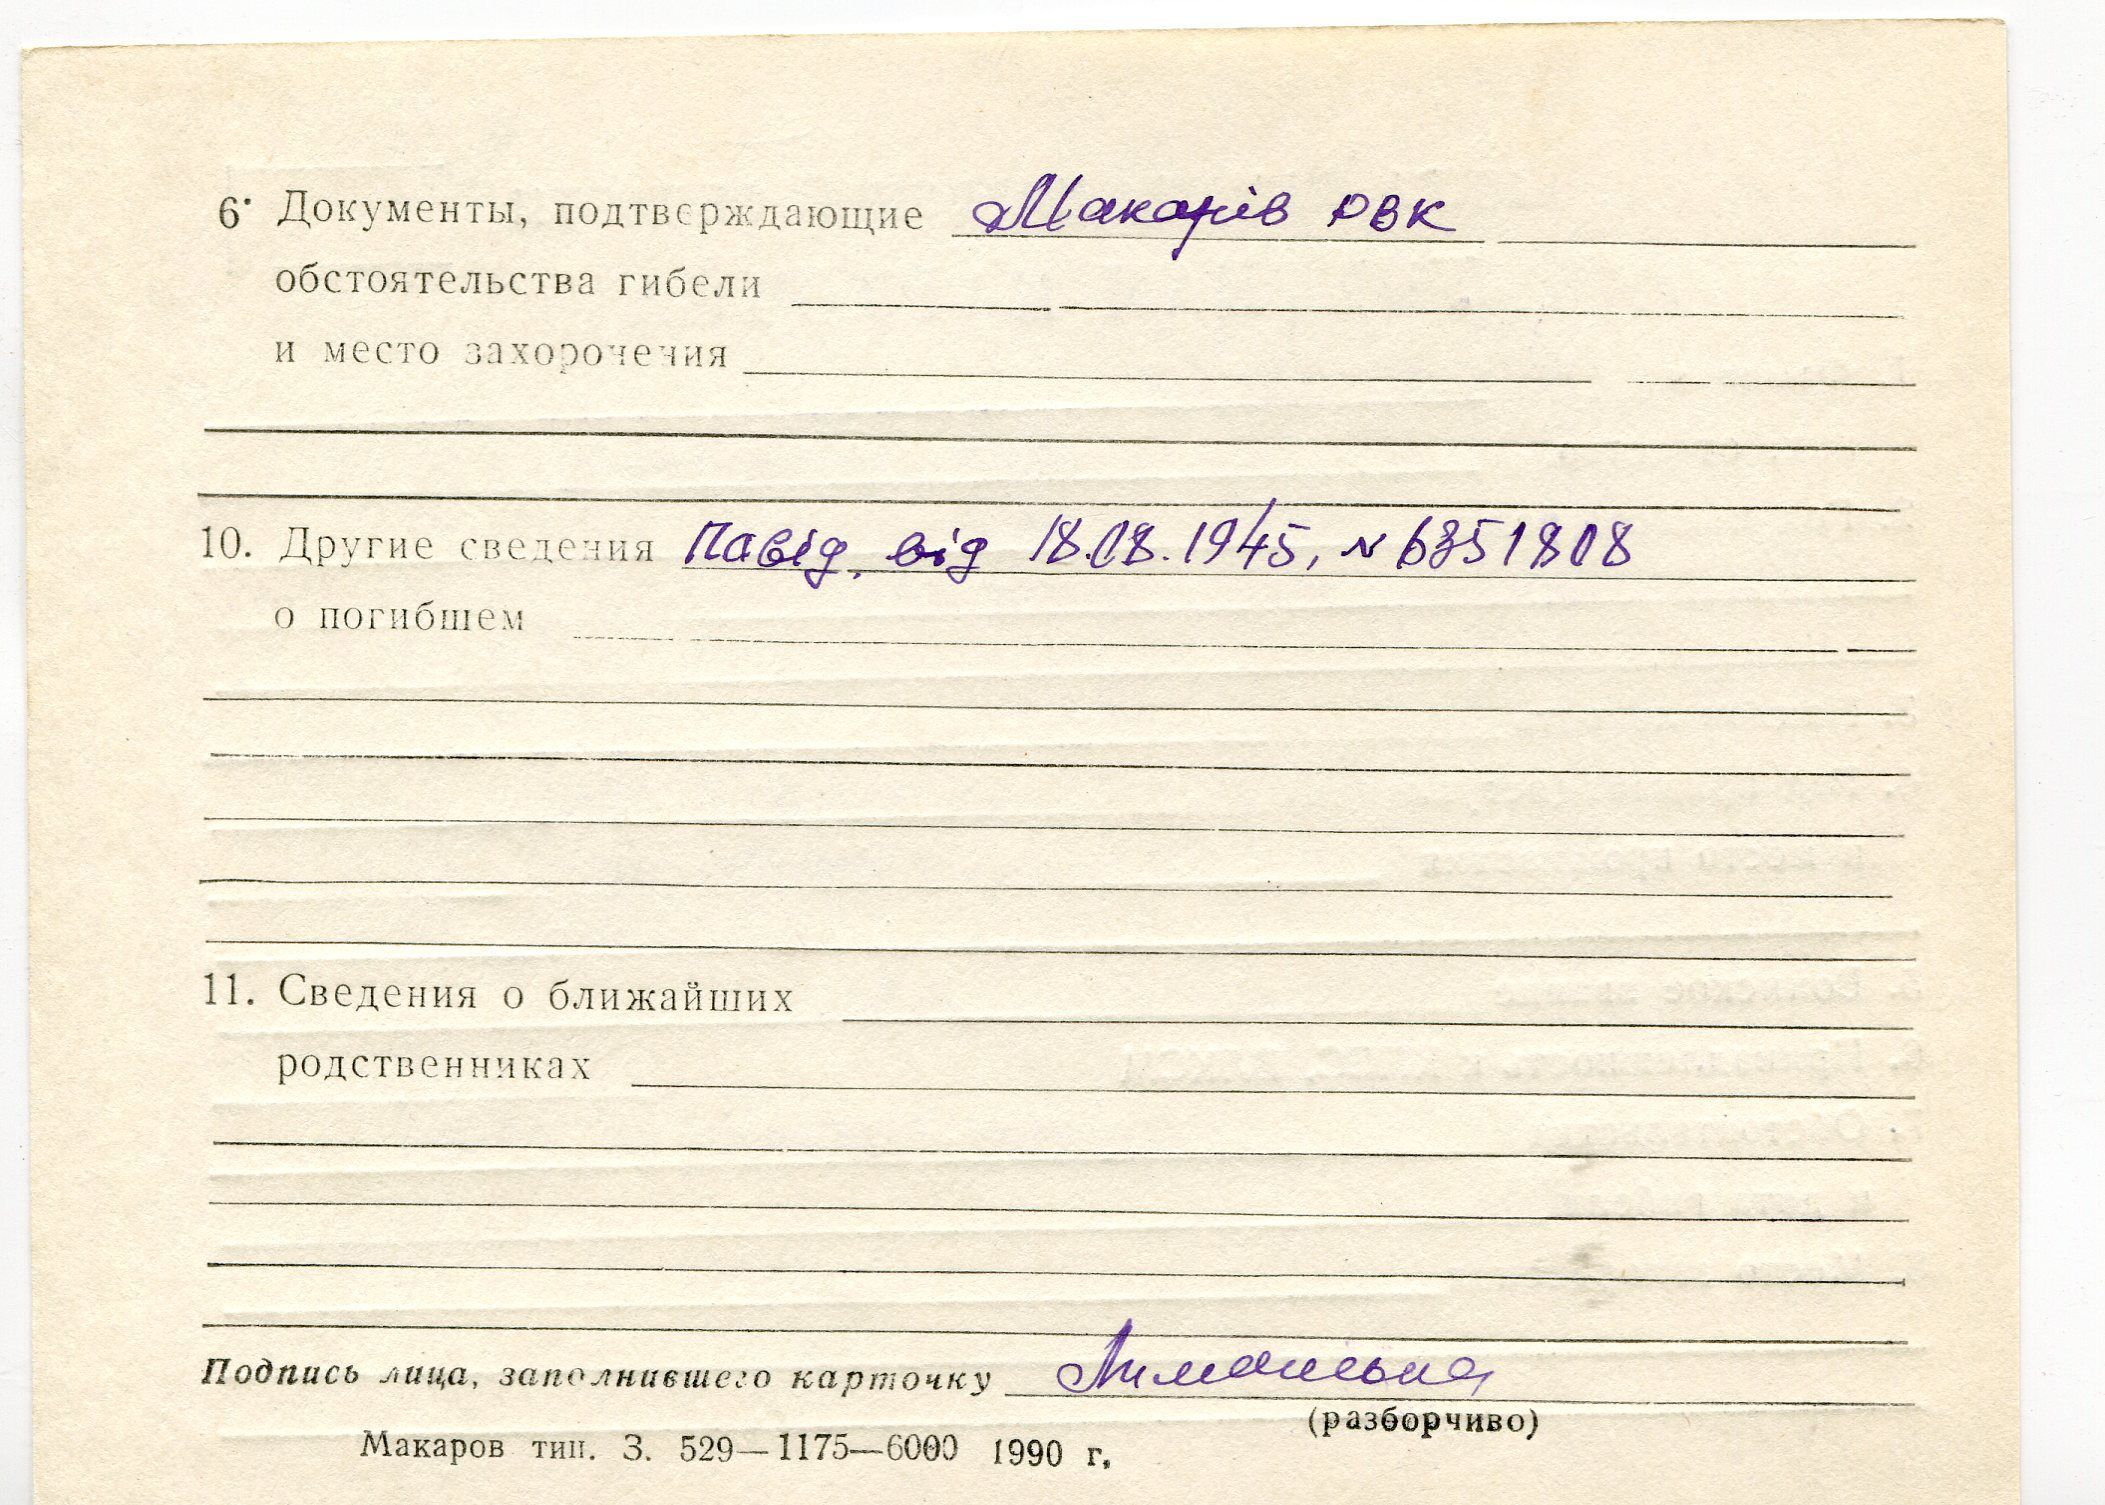 6. Документы, подтверждающие Макарів РВК
обстоятельства гибели
и место захорочения
10. Другие сведения Павід. від 18.08.1945, N 6351808
о погибшем
11. Сведения о ближайших
родственниках
Подпись лица, заполнившего карточку
(разборчиво)
Макаров тип. З. 529—1175—6000 1990 г.